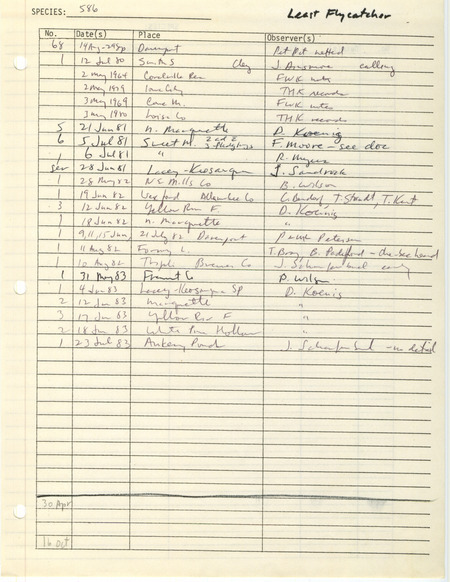 SPECIES: 586 Least Flycatcher
No. Date(s) Place Observer(s)
68 14Aug-29Sep Davenport Pet Pet netted
1 12 Jul 80 Clay J. Dinsmore calling
2 May 1964 Coralville Res FWK notes
2 May 1979 Iowa City THK records
3 May 1969 Cone M. FWK notes
3 May 1980 Louisa Co THK records
5 21 Jun 81 n. Marquette D. Koenig
6 5 Jul 81 Sweet M. 2 ad 2 F. Moore - see doc
1 6 Jul 81 " R. Myers
28 Jun 81 Lacey-Keosauqua J. Sandrock
1 28 May 82 NS Mills Co B. Wilson
1 19 Jun 82 Allamakee Co C. Bendorf, T. Staudt, T. Kent
3 12 Jun 82 Yellow River F D. Koenig
1 18 Jun 82 n. Marquette "
1 9,11,15 Jun, 21 July 82 Davenport Petersen
1 11 Aug 82 T. Bray, B. Padelford
1 10 Aug 82 Co J.
1 31 May 83 Fremont Co B. Wilson
1 4 Jun 83 Lacey-Keosauqua SP D. Koenig
2 12 Jun 83 Marquette "
3 17 Jun 83 Yellow River F "
2 18 Jun 83 White Pine Hollow "
1 23 Jul 83 Ankeny Pond J. - no detail
30 Apr
16 Oct